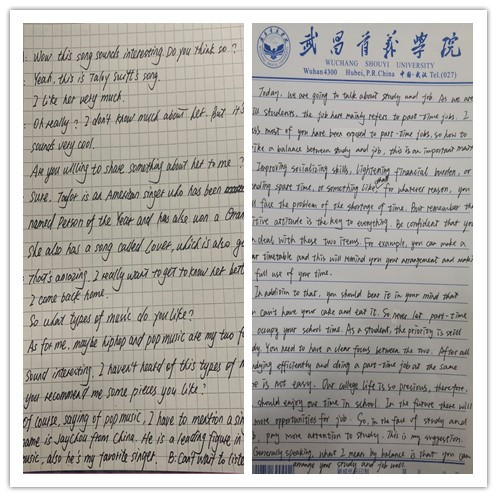 : Wow this song sounds interesting. Do you think so?
: Yeah, this is Taloy Swift's song.
I like her very much.
: Oh really? I don't know much about her. But it's
sounds very cool.
Are you willing to share something about her to me?
: Sure. Taylor is an American singer who has been
named Person of the Year and has also won a Gram
She also has a song called Lover, which is also ge
: That's amazing. I really want to get to know her bett
I come back home.
So what types of music do you like?
: As for me, maybe hiphop and pop music are my two f
Sound interesting. I haven't heard of this types of m
you recommend me some pieces you like?
f course, saying of pop music, I have to mention a sin
name is Jaychou from China. He is a leading figure in
music, also he's my favorite singer. B: Can't wait to liste
武昌首義學院
WUCHANG SHOUYI UNIVERSITY
Wuhan4300 Hubei, P.R. China 中国·武汉 Tel.(027)
Today, we are going to talk about study and job. As we are
students, the job here mainly refers to part-time jobs. I
ss, most of you have been exposed to part-time jobs, so how to
ke a balance between study and job, this is an important matt
Improving socializing skills, lightening financial burden, or
nding spare time, or something like that for whatever reason, you
face the problem of the shortage of time. But remember the
itive attitude is the key to everything. Be confident that you
deal with these two items. For example, you can make a
ur timetable and this will remind you your arrangement and make
full use of your time.
In addition to that, you should bear it in your mind that
can't have your cake and eat it. So never let part-time
occupy your school time. As a student, the priority is still
dy. You need to have a clear focus between the two. After all
udying efficiently and doing a part-time job at the same
e is not easy. Our college life is so precious, therefore,
should enjoy our time in school. In the future there will
more opportunities for job. So, in the face of study and
b, pay more attention to study. This is my suggestion.
Generally speaking, what I mean by balance is that you can
arrange your study and job well.